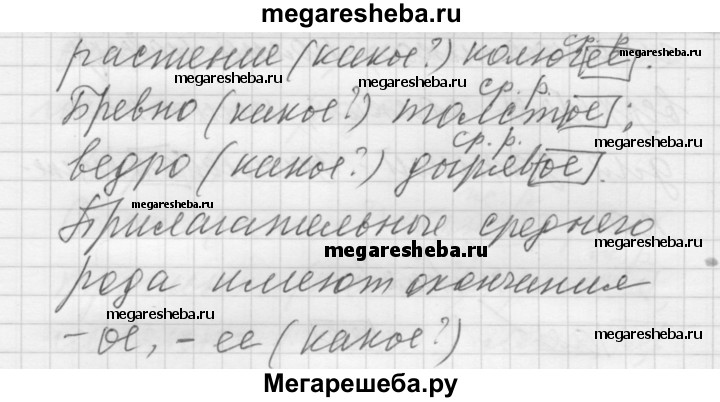 megaresheba.ru
ср. р.
растение (какое?) колючее.
megaresheba.ru
megaresheba.ru
ср. р.
Бревно (какое?) толстое;
megaresheba.ru
megaresheba.ru
ср. р.
ведро (какое?) дырявое.
Прилагательные среднего
megaresheba.ru
megaresheba.ru
рода имеют окончания
megaresheba.ru
megaresheba.ru
-ое, -ее (какое?)
Мегарешеба.ру